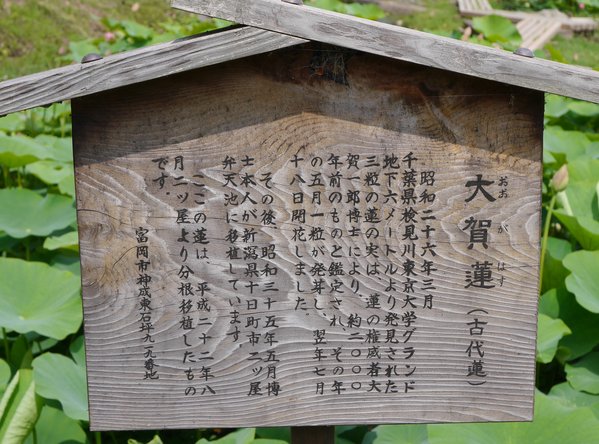 大賀蓮(古代蓮)
おお が はす
昭和二十六年三月
千葉県検見川東京大学グランド
地下六メートルより発見された
三粒の蓮の実は、蓮の権威者大
賀一郎博士により、約二〇〇〇
年前のものと鑑定され、その年
の五月一粒が発芽し、翌年七月
十八日開花しました。
その後、昭和三十五年五月博
士本人が新潟県十日町市二ッ屋
弁天池に移植しています。
ここの蓮は、平成二十二年八
月二ッ屋より分根移植したもの
です。
富岡市神成東石坪九九番地